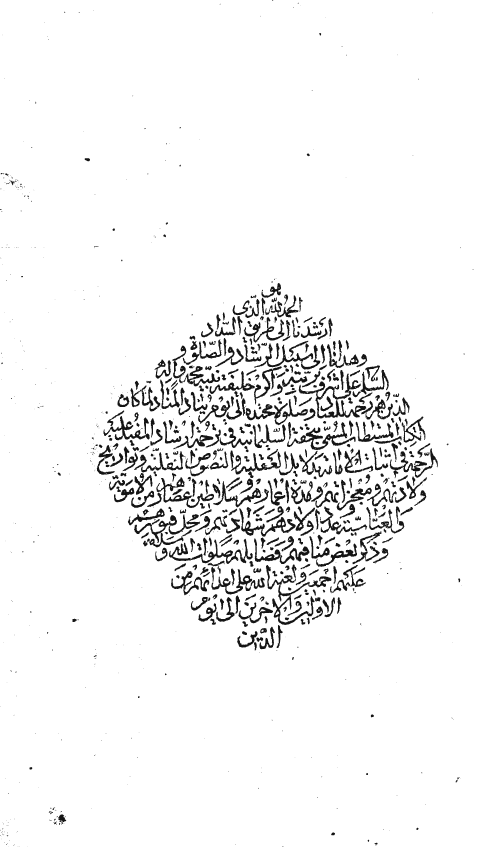 هو
الحمدلله الذی
ارشدنا الی طریق السداد
وهدانا الی سبیل الرشاد والصلوة و
السلم علی اشرف بریته و اکرم خلیفته نبیه محمد و اله
الذین هم رحمة للعباد وصلوة ممتدة الی یوم یناد المناد لما کان
الکتاب المستطاب المسمی بتحفة السلیمانیة فی ترجمة ارشاد المفید علیه
الرحمة فی اثبات الامامة بدلایل العقلیة والنصوص النقلیة وتواریخ
ولادتهم ومعجزاتهم ومدة اعمارهم وسلاطین اعصارهم من الامویة
والعباسیة وعدد اولادهم وشهادتهم ومحل قبورهم
وذکر بعض مناقبهم وفضایلهم صلوات الله و سلامه
علیهم اجمعین ولعنة الله علی اعدائهم من
الاولین والاخرین الی یوم
الدین